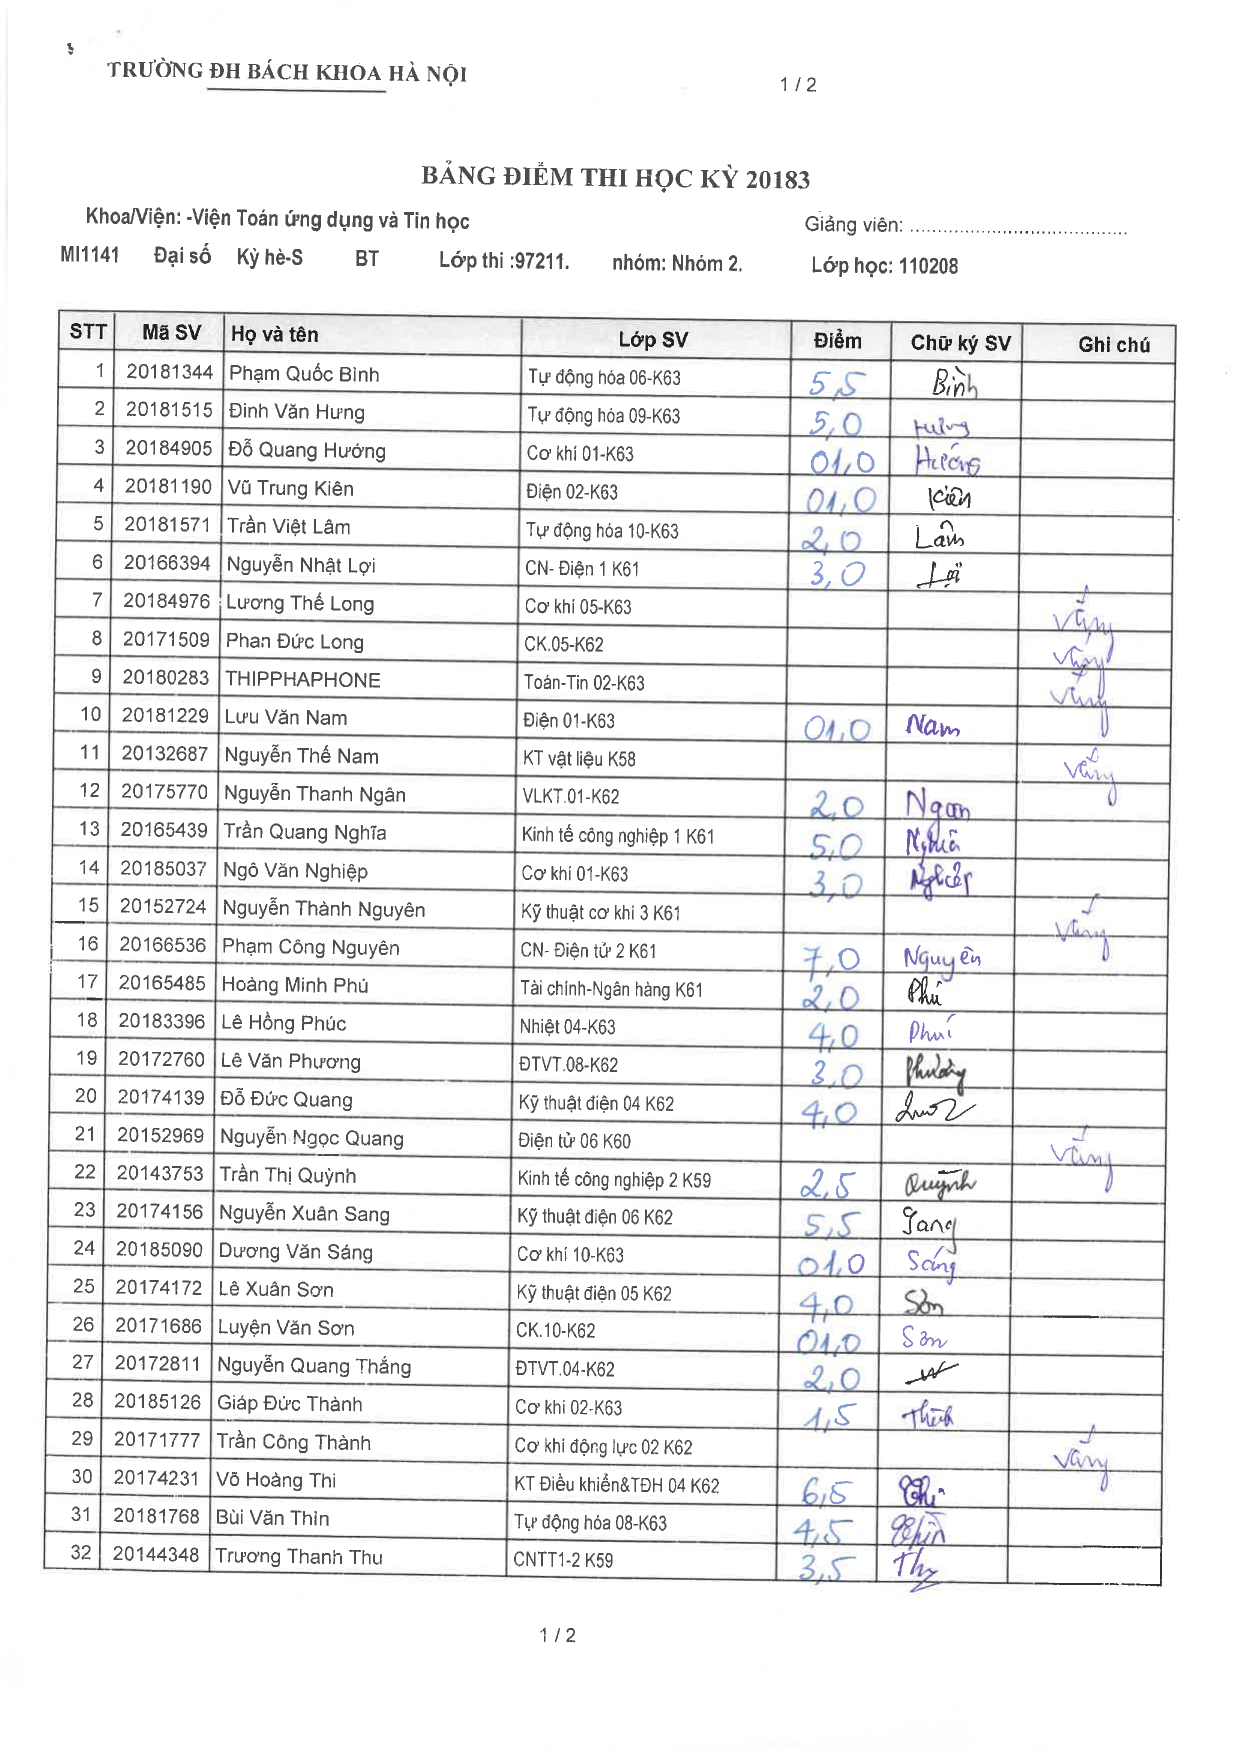 TRƯỜNG ĐH BÁCH KHOA HÀ NỘI
1 / 2
BẢNG ĐIỂM THI HỌC KỲ 20183
Khoa/Viện: -Viện Toán ứng dụng và Tin học Giảng viên: ........................................
MI1141 Đại số Kỳ hè-S BT Lớp thi :97211. nhóm: Nhóm 2. Lớp học: 110208
STT Mã SV Họ và tên Lớp SV Điểm Chữ ký SV Ghi chú
1 20181344 Phạm Quốc Bình Tự động hóa 06-K63 5,5 Bình
2 20181515 Đinh Văn Hưng Tự động hóa 09-K63 5,0 Hưng
3 20184905 Đỗ Quang Hướng Cơ khí 01-K63 01,0 Hướng
4 20181190 Vũ Trung Kiên Điện 02-K63 01,0 Kiên
5 20181571 Trần Việt Lâm Tự động hóa 10-K63 2,0 Lâm
6 20166394 Nguyễn Nhật Lợi CN- Điện 1 K61 3,0 Lợi
7 20184976 Lương Thế Long Cơ khí 05-K63 Vắng
8 20171509 Phan Đức Long CK.05-K62 Vắng
9 20180283 THIPPHAPHONE Toán-Tin 02-K63 Vắng
10 20181229 Lưu Văn Nam Điện 01-K63 01,0 Nam
11 20132687 Nguyễn Thế Nam KT vật liệu K58 Vắng
12 20175770 Nguyễn Thanh Ngân VLKT.01-K62 2,0 Ngan
13 20165439 Trần Quang Nghĩa Kinh tế công nghiệp 1 K61 5,0 Nghĩa
14 20185037 Ngô Văn Nghiệp Cơ khí 01-K63 3,0
15 20152724 Nguyễn Thành Nguyên Kỹ thuật cơ khí 3 K61 Vắng
16 20166536 Phạm Công Nguyên CN- Điện tử 2 K61 7,0 Nguyên
17 20165485 Hoàng Minh Phú Tài chính-Ngân hàng K61 2,0 Phú
18 20183396 Lê Hồng Phúc Nhiệt 04-K63 4,0 Phúc
19 20172760 Lê Văn Phương ĐTVT.08-K62 3,0 Phương
20 20174139 Đỗ Đức Quang Kỹ thuật điện 04 K62 4,0
21 20152969 Nguyễn Ngọc Quang Điện tử 06 K60 Vắng
22 20143753 Trần Thị Quỳnh Kinh tế công nghiệp 2 K59 2,5 Quỳnh
23 20174156 Nguyễn Xuân Sang Kỹ thuật điện 06 K62 5,5 Sang
24 20185090 Dương Văn Sáng Cơ khí 10-K63 01,0 Sáng
25 20174172 Lê Xuân Sơn Kỹ thuật điện 05 K62 4,0 Sơn
26 20171686 Luyện Văn Sơn CK.10-K62 01,0 Sơn
27 20172811 Nguyễn Quang Thắng ĐTVT.04-K62 2,0
28 20185126 Giáp Đức Thành Cơ khí 02-K63 1,5
29 20171777 Trần Công Thành Cơ khí động lực 02 K62 Vắng
30 20174231 Võ Hoàng Thi KT Điều khiển&TĐH 04 K62 6,5 Thi
31 20181768 Bùi Văn Thìn Tự động hóa 08-K63 4,5 Thìn
32 20144348 Trương Thanh Thu CNTT1-2 K59 3,5 Thu
1 / 2